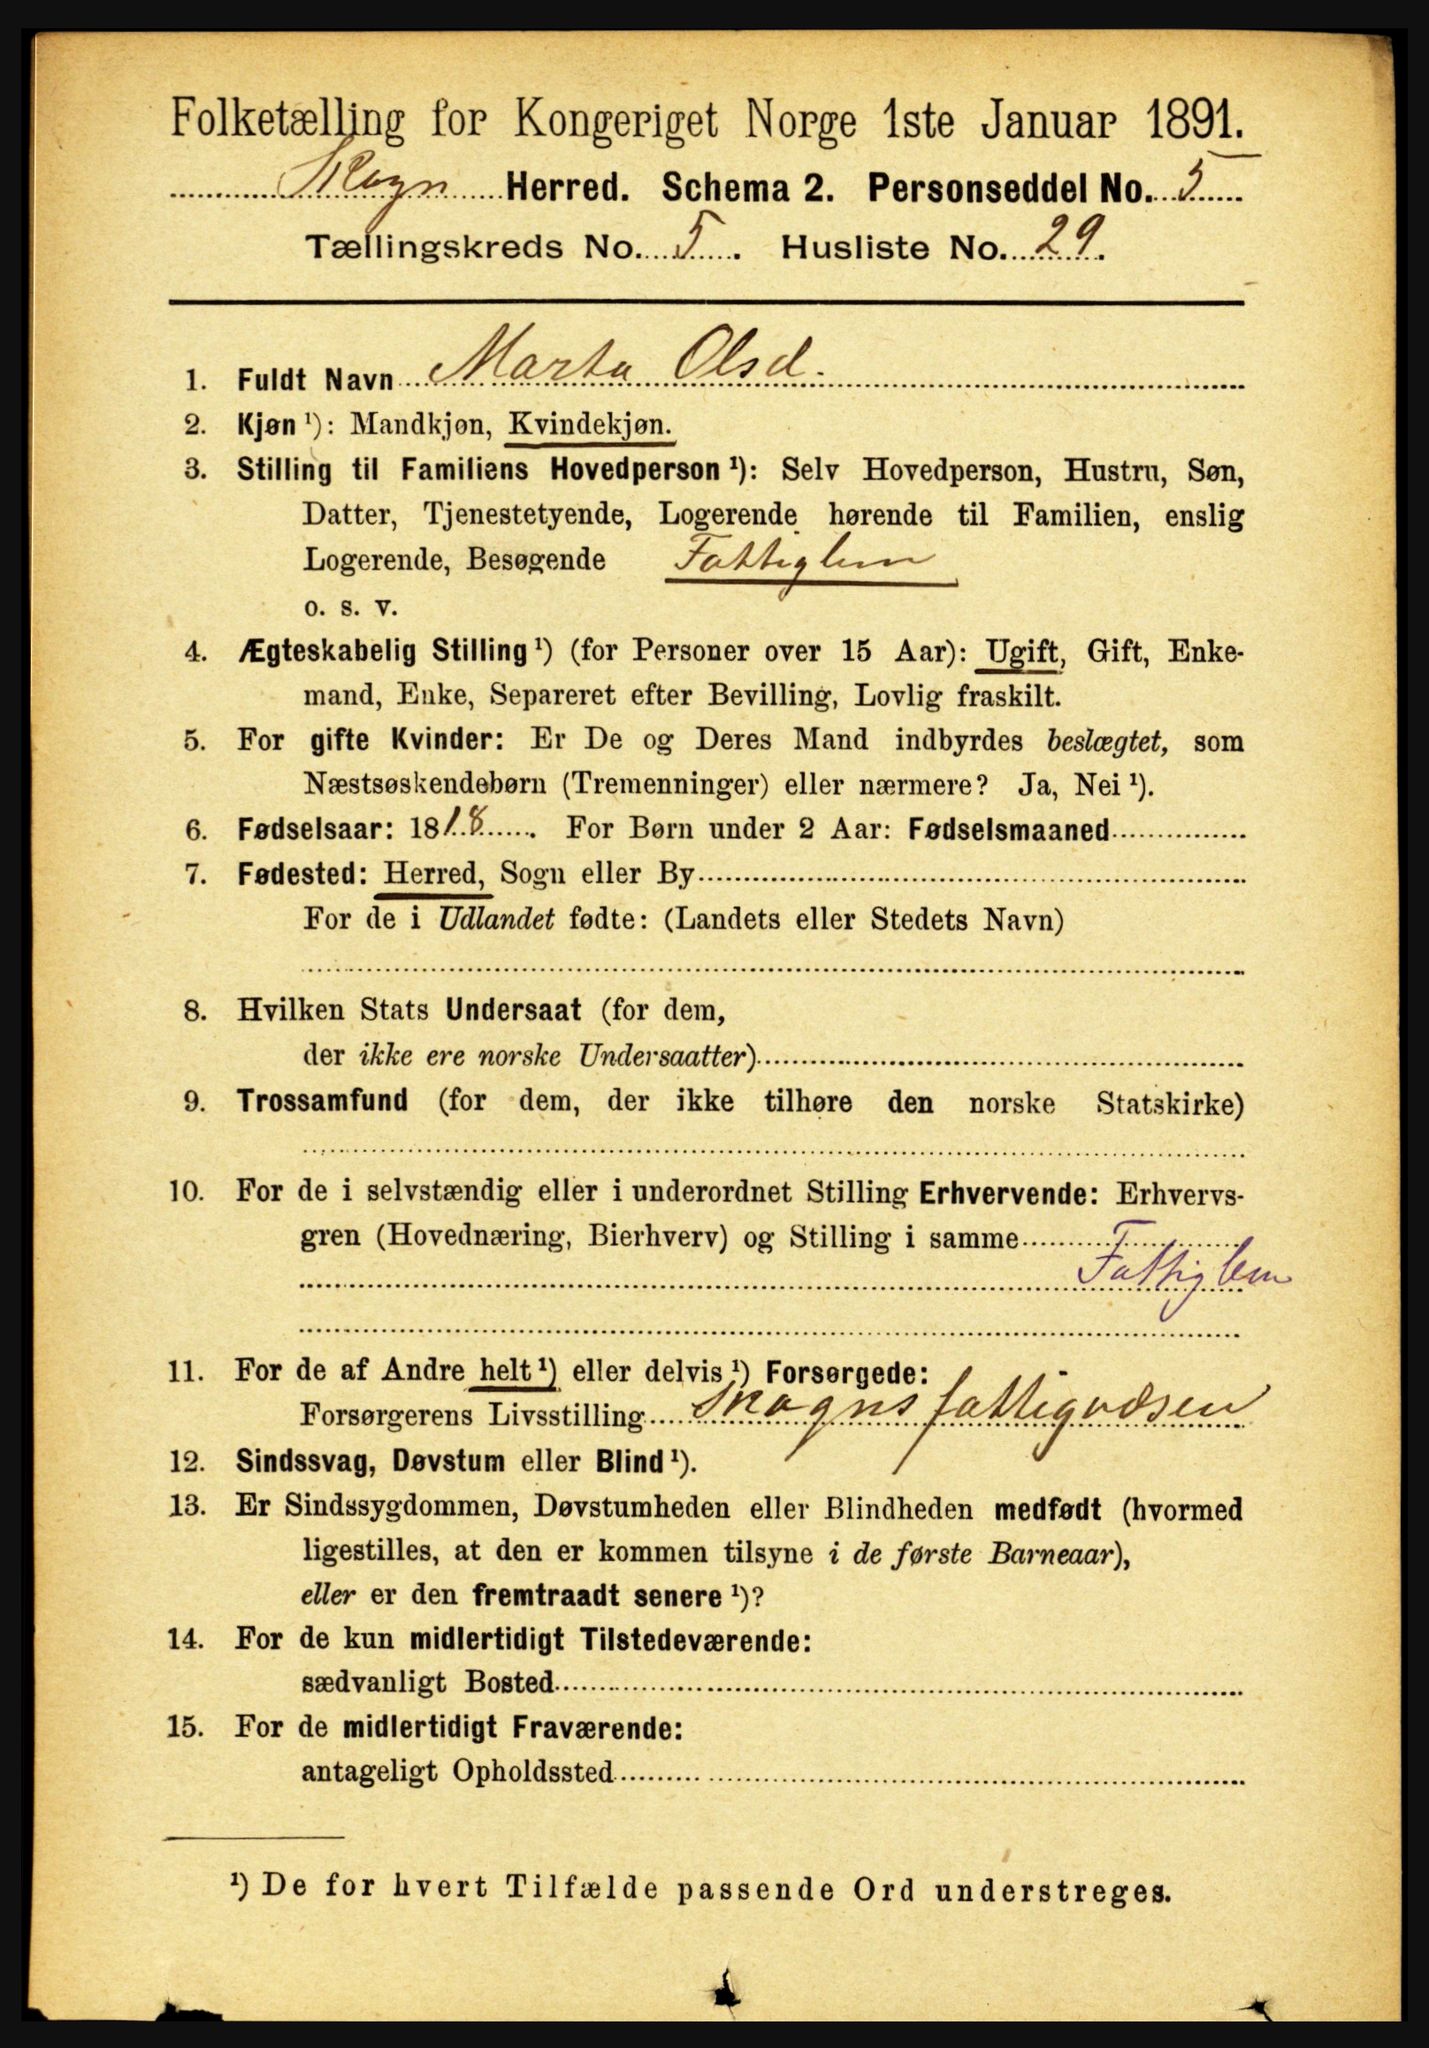 Folketælling for Kongeriget Norge 1ste Januar 1891.
Skogn Herred. Schema 2. Personseddel No. 5
Tællingskreds No. 5. Husliste No. 29.
1. Fuldt Navn Marta Olsd.
2. Kjøn ¹): Mandkjøn, Kvindekjøn.
3. Stilling til Familiens Hovedperson ¹): Selv Hovedperson, Hustru, Søn,
Datter, Tjenestetyende, Logerende hørende til Familien, enslig
Logerende, Besøgende Fattiglem
o. s. v.
4. Ægteskabelig Stilling ¹) (for Personer over 15 Aar): Ugift, Gift, Enke-
mand, Enke, Separeret efter Bevilling, Lovlig fraskilt.
5. For gifte Kvinder: Er De og Deres Mand indbyrdes beslægtet, som
Næstsøskendebørn (Tremenninger) eller nærmere? Ja, Nei ¹).
6. Fødselsaar: 1818. For Børn under 2 Aar: Fødselsmaaned
7. Fødested: Herred, Sogn eller By
For de i Udlandet fødte: (Landets eller Stedets Navn)
8. Hvilken Stats Undersaat (for dem,
der ikke ere norske Undersaatter)
9. Trossamfund (for dem, der ikke tilhøre den norske Statskirke)
10. For de i selvstændig eller i underordnet Stilling Erhvervende: Erhvervs-
gren (Hovednæring, Bierhverv) og Stilling i samme
Fattiglem
11. For de af Andre helt ¹) eller delvis ¹) Forsørgede:
Forsørgerens Livsstilling Skogns fattigvæsen
12. Sindssvag, Døvstum eller Blind ¹).
13. Er Sindssygdommen, Døvstumheden eller Blindheden medfødt (hvormed
ligestilles, at den er kommen tilsyne i de første Barneaar),
eller er den fremtraadt senere ¹)?
14. For de kun midlertidigt Tilstedeværende:
sædvanligt Bosted
15. For de midlertidigt Fraværende:
antageligt Opholdssted
¹) De for hvert Tilfælde passende Ord understreges.